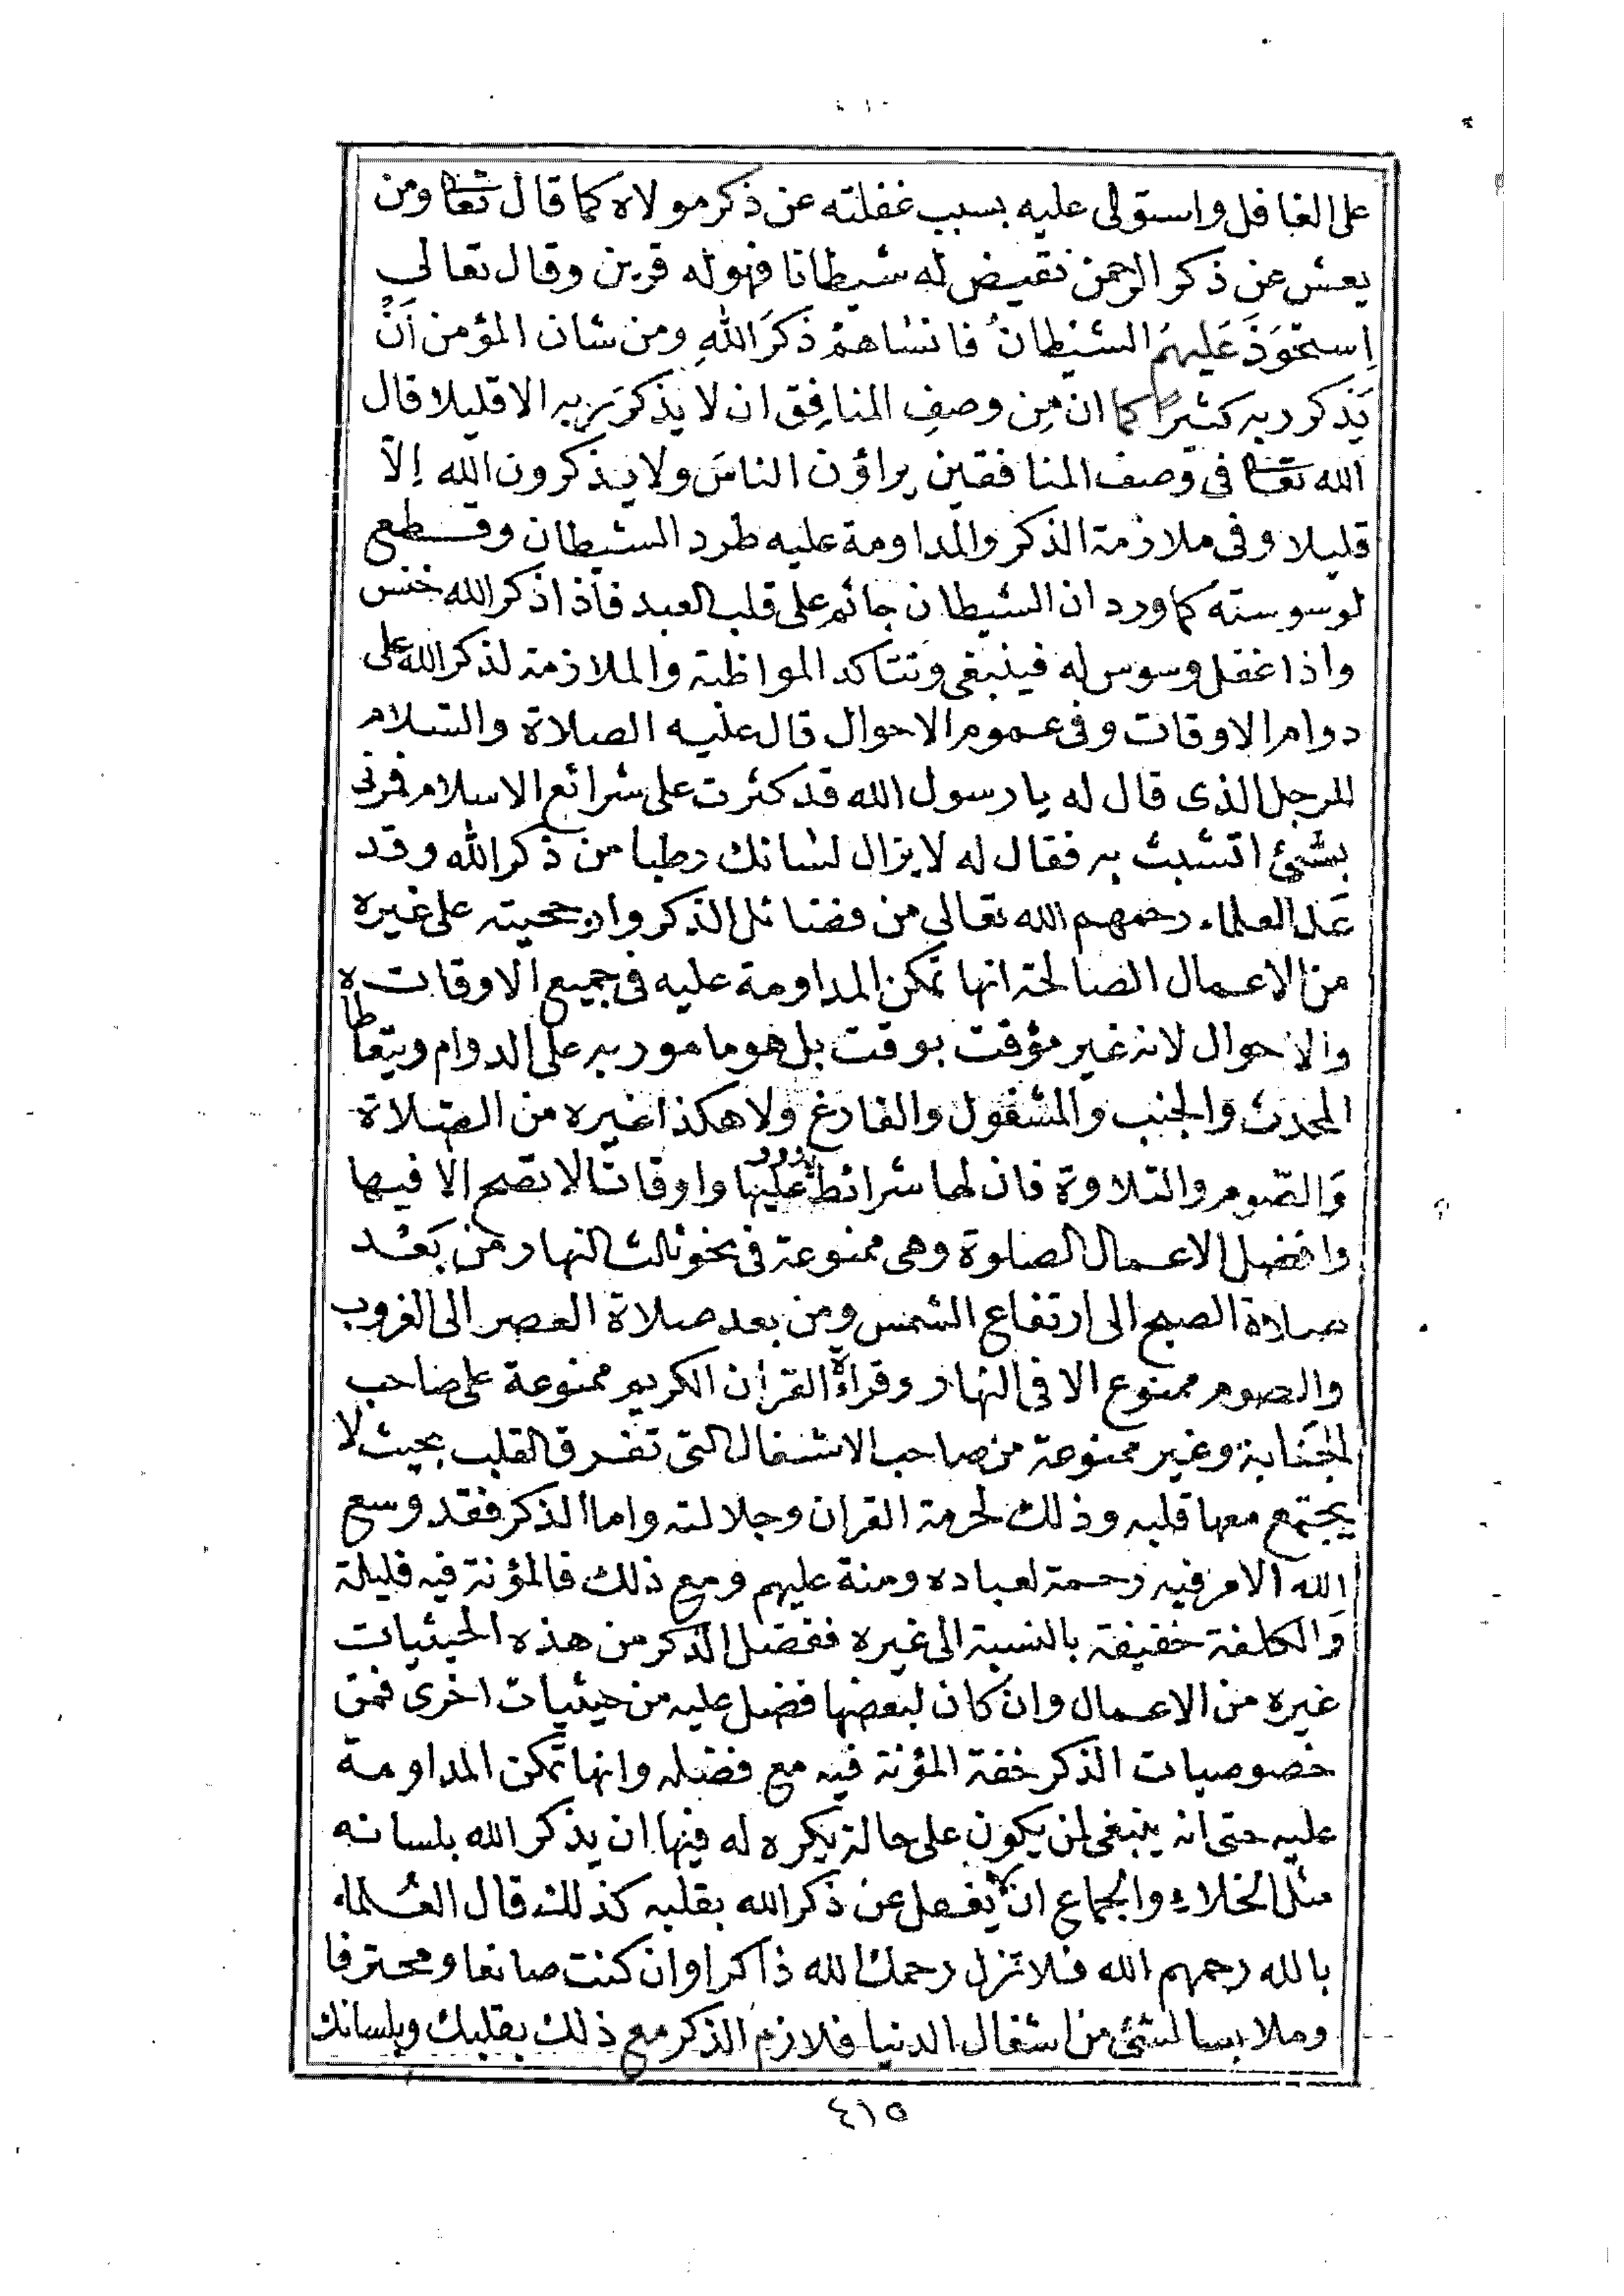 على الغافل واستولى عليه بسبب غفلته عن ذكر مولاه كما قال تعالى ومن
يعش عن ذكر الرحمن نقيض له شيطانا فهو له قرين وقال تعالى
اِستحوَذَ عَليهمُ الشيْطانُ فانساهمْ ذكَرَ اللهِ ومن شان المؤمن اَنْ
يَذكر ربه كثيرًا كما ان مِن وصفِ المنافِق ان لا يذكرَ ربه الا قليلا قال
الله تعالى فى وصف المنافقين يراؤن الناسَ ولا يذكرون الله اِلاّ
قليلا وفى ملازمة الذكر والمداومة عليه طرد الشيطان وقطع
لوسوسته كما ورد ان الشيطان جاثم على قلب العبد فاذا ذكر الله خنس
واذا غفل وسوس له فينبغى وتتاكد المواظبة والملازمة لذكر الله على
دوام الاوقات وفى عموم الاحوال قال عليه الصلاة والسّلام
للرجل الذى قال له يا رسول الله قد كثرت على شرائع الاسلام فمرنى
بشئ اتشبث به فقال له لا يزال لسانك رطبا من ذكر الله وقد
عَد العلماء رحمهم الله تعالى من فضائل الذكر وارجحيته على غيره
من الاعمال الصالحة انها تمكن المداومة عليه فى جميع الاوقات ه
والاحوال لانه غير مؤقت بوقت بل هو مامور به على الدوام ويتعاطا
المحدث والجنب والمشغول والفارغ ولا هكذا غيره من الصّلاة
وَالصّوم والتلاوة فان لها شرائط عليها واوقاتًا لا تصح الا فيها
وافضل الاعمال الصلوة وهى ممنوعة فى نحو ثالث النهار من بَعْد
صلاة الصبح الى ارتفاع الشمس ومن بعد صلاة العصر الى الغروب
والصوم ممنوع الا فى النهار وقراءة القران الكريم ممنوعة على صاحب
الجَنابة وغير ممنوعة من صاحب الاشغال التى تفرق القلب بحيث لا
يجتمع معها قلبه وذلك لحرمة القران وجلالته واما الذكر فقد وسع
الله الامر فيه رحمة لعباده ومنة عليهم ومع ذلك فالمؤنة فيه قليلة
وَالكلفة خفيفة بالنسبة الى غيره ففضل الذكر من هذه الحيثيات
غيره من الاعمال وان كان لبعضها فضل عليه من حيثيات اخرى فمن
خصوصيات الذكر خفة المؤنة فيه مع فضله وانها تمكن المداومة
عليه حتى انه ينبغى لمن يكون على حالة يكره له فيها ان يذكر الله بلسانه
مثل الخلاء والجماع ان لا يغفل عن ذكر الله بقلبه كذلك قال العُلماء
بالله رحمهم الله فلا تزل رحمك الله ذاكرا وان كنت صانعا ومحترفا
وملابسا لشئ من اشغال الدنيا فلازم الذكر مع ذلك بقلبك وبلسانك
٤١٥